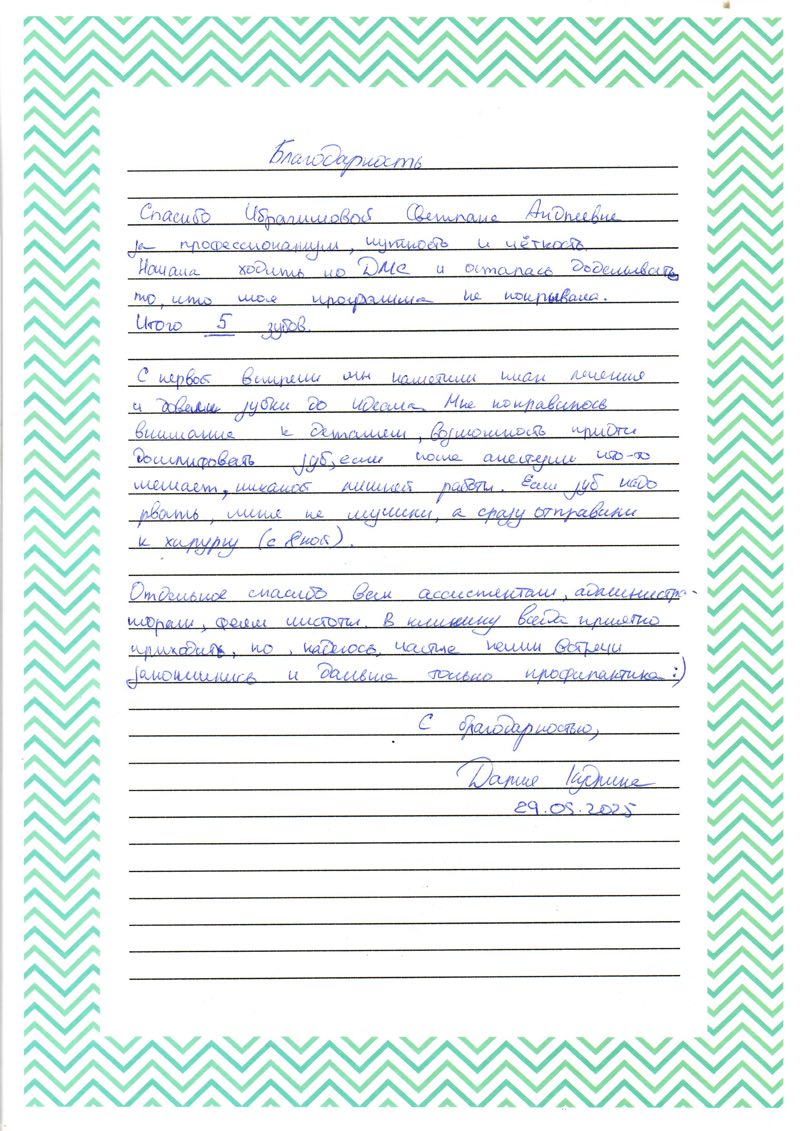 Благодарность
Спасибо Ибрагимовой Светлане Андреевне
за профессионализм, чуткость и чёткость.
Начала ходить по ДМС и осталась доделывать
то, что моя программа не покрывала.
Итого 5 зубов.
С первой встречи мы наметили план лечения
и довели зубки до идеала. Мне понравилось
внимание к деталям, возможность прийти
дошлифовать зуб, если после анестезии что-то
мешает, никакой лишней работы. Если зуб надо
рвать, меня не мучили, а сразу отправили
к хирургу (с 8кой).
Отдельное спасибо всем ассистентам, администра-
торам, феям чистоты. В клинику всегда приятно
приходить, но, надеюсь, частые встречи
закончились и дальше только профилактика :)
С благодарностью,
Дарья
29.05.2025